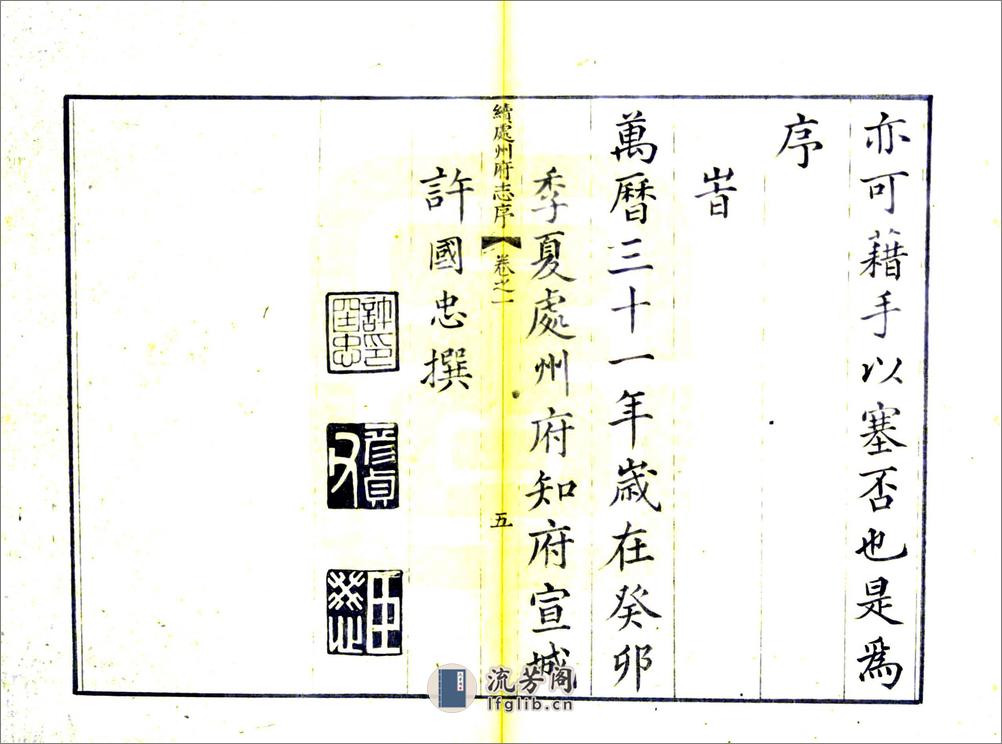 亦可藉手以塞否也是爲
序
旹
萬曆三十一年歲在癸卯
季夏處州府知府宣城
續處州府志序
卷之一
五
許國忠撰
許國忠印
彥貞父
流芳阁
lfglib.cn